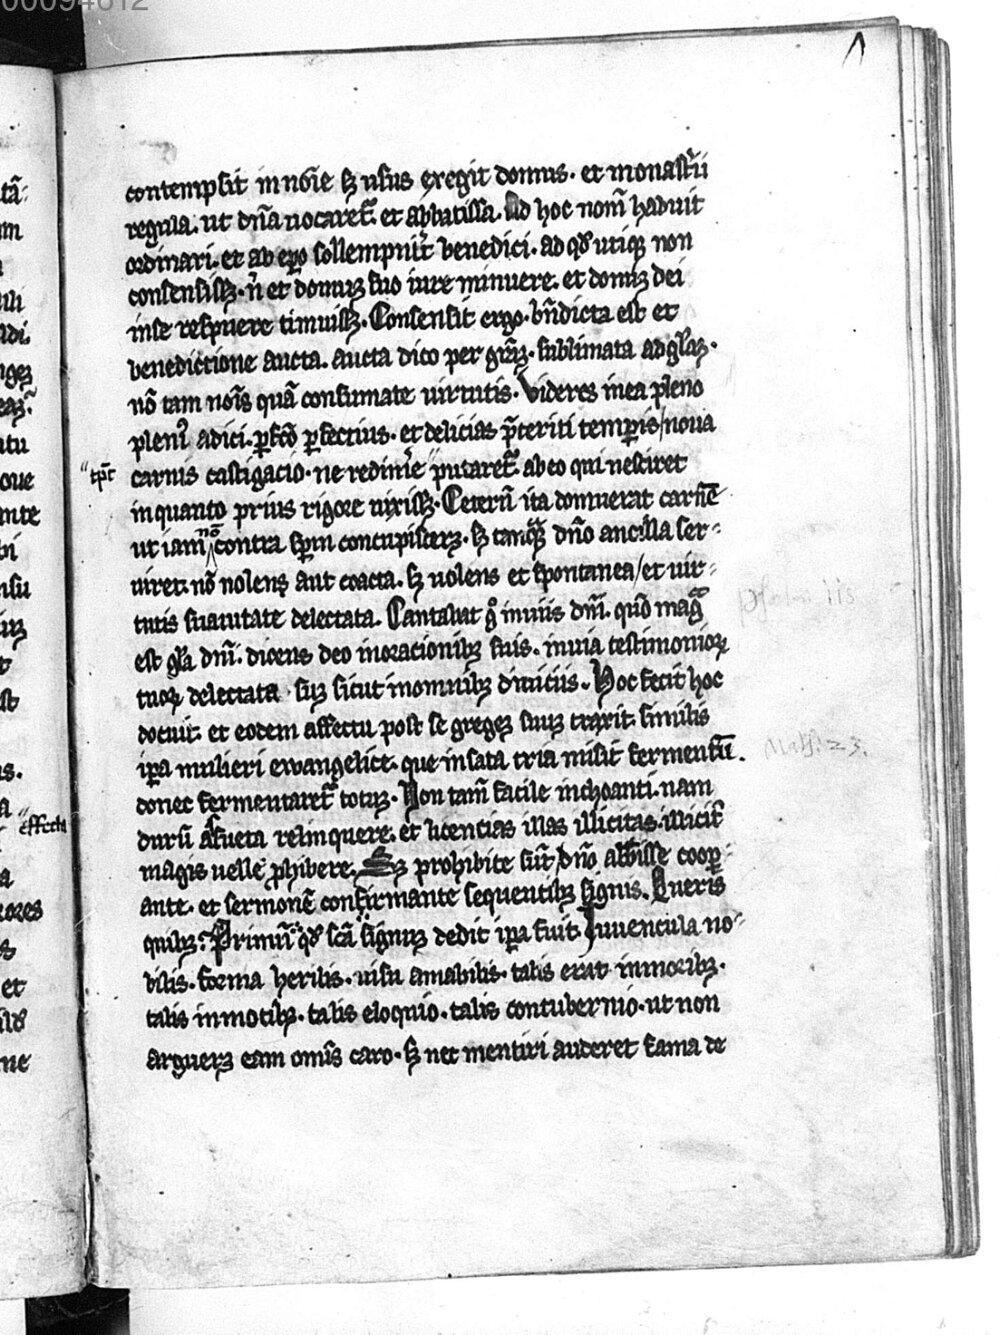 00094612
contempsit in noıe sꝫ usus exegit domus · et monast̄ii
regula. ut dn̄a uocaret᷑ et abbatissa. Ad hoc nom̄ habuit
ordinari. et ab ep̄o sollempnit̄ benedici. ad qđ utiqꝫ non
consensissꝫ · n̄ et domuꝫ suo iure minuere. et domiꝫ dei
inse respuere timuissꝫ · Consensit ergo · bn̄dicta est et
benedictione aucta. aucta dico per gr̄aꝫ · sublimata ad gl̄aꝫ ·
nō tam nōis quā consumate uirtutis · Videres inea pleno
pleniꝰ adici · ꝑfc̄o ꝑfectius · et delicias p̄teriti temꝑis / noua
carnis castigacio · ne redimıe putaret᷑ ab eo qui nesciret
inquanto prius rigore uixissꝫ · Ceterū ita domuerat carnē
ut iam nō contra sp̄m concupisceꝫ · sꝫ tanqͣꝫ dn̄o ancilla ser-
uiret nō nolens aut coacta. sꝫ uolens et spontanea / et uir-
tutis suauitate delectata. Cantabat g̊ inuiis dn̄i. qūo mag̅
est gl̄a dn̄i. dicens deo inorationibꝫ suis. inuia testimonioꝝ
tuoꝝ delectata suꝫ sicut inomnibꝫ diuiciis. Hoc fecit hoc
docuit et eodem affectu post se gregeꝫ suuꝫ traxit similis
ip̄a mulieri ewangelice. que insata tria misit fermentū.
donec fermentaret᷑ totuꝫ. Non tam̄ facile inchoanti. nam
durū assueta relinquere. et licencias illas illicitas. illicit̄
magis uelle ꝓhibere. Sꝫ prohibite sūt dn̄o abb̄isse cooꝑ-
ante. et sermonē confirmante sequentibꝫ signis. Queris
quibꝫ? Primū qđ sc̄i signuꝫ dedit ip̄a fuit. Iuuencula no-
bilis. forma herilis. uisu amabilis. talis erat inmoribꝫ.
talis inmotibꝫ. talis eloquio. talis contubernio. ut non
argueꝫ eam om̄is caro. sꝫ nec mentiri auderet fama de